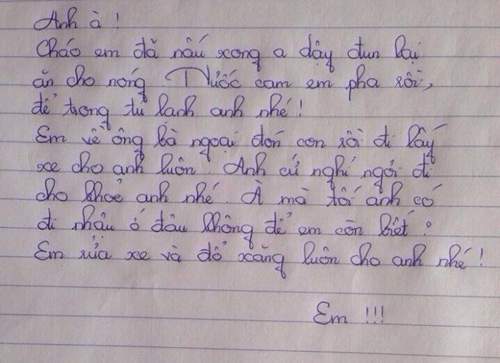 Anh à !
Cháo em đã nấu xong a dậy đun lại
ăn cho nóng Nước cam em pha rồi,
để trong tủ lạnh anh nhé !
Em về ông bà ngoại đón con rồi đi lấy
xe cho anh luôn. Anh cứ nghỉ ngơi đi
cho khoẻ anh nhé. À mà tối anh có
đi nhậu ở đâu không để em còn biết ?
Em rửa xe và đổ xăng luôn cho anh nhé !
Em !!!